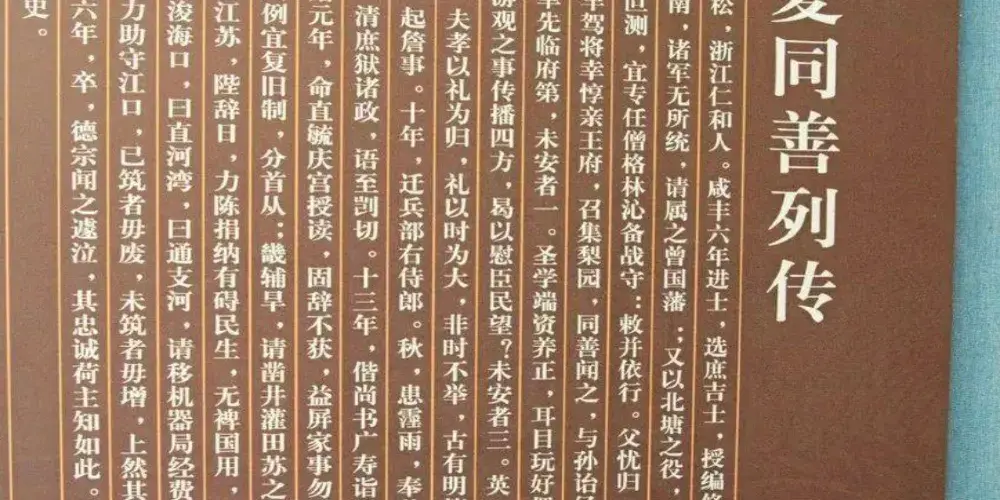 同善列传
松，浙江仁和人。咸丰六年进士，选庶吉士，授编修
南，诸军无所统，请属之曾国藩；又以北塘之役，
叵测，宜专任僧格林沁备战守：敕并依行。父忧归
车驾将幸惇亲王府，召集梨园，同善闻之，与孙诒
幸先临府第，未安者一。圣学端资养正，耳目玩好
游观之事传播四方，曷以慰臣民望？未安者三。英
夫孝以礼为归，礼以时为大，非时不举，古有明
起詹事。十年，迁兵部右侍郎。秋，患霪雨，奉
清庶狱诸政，语至剀切。十三年，偕尚书广寿诣
元年，命直毓庆宫授读，固辞不获，益屏家事勿
例宜复旧制，分首从；畿辅旱，请凿井灌田苏之
江苏，陛辞日，力陈捐纳有碍民生，无裨国用，
浚海口，曰直河湾，曰通支河，请移机器局经费
力助守江口，已筑者毋废，未筑者毋增，上然其
六年，卒，德宗闻之遽泣，其忠诚荷主知如此。
史。